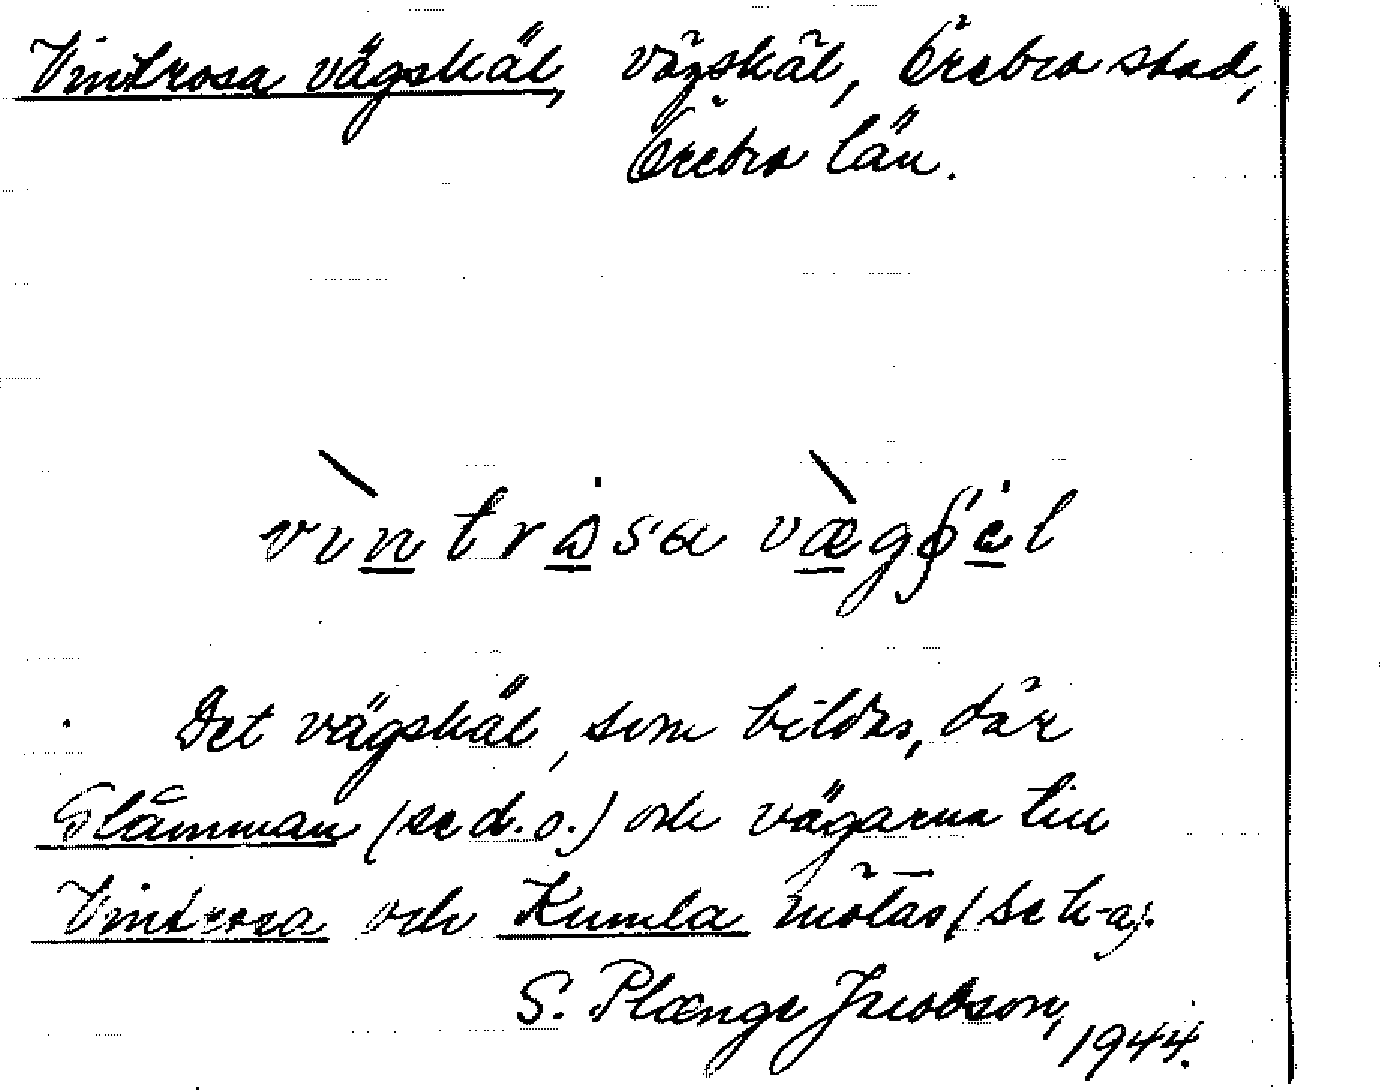 Vintrosa vägskäl, vägskäl, Örebro stad,
Örebro län.
Det vägskäl, som bildas, där
Glåmman (se d. o.) och vägarna till
Vintrosa och Kumla mötas (se k-a).
S. Plænge Jacobson, 1944.